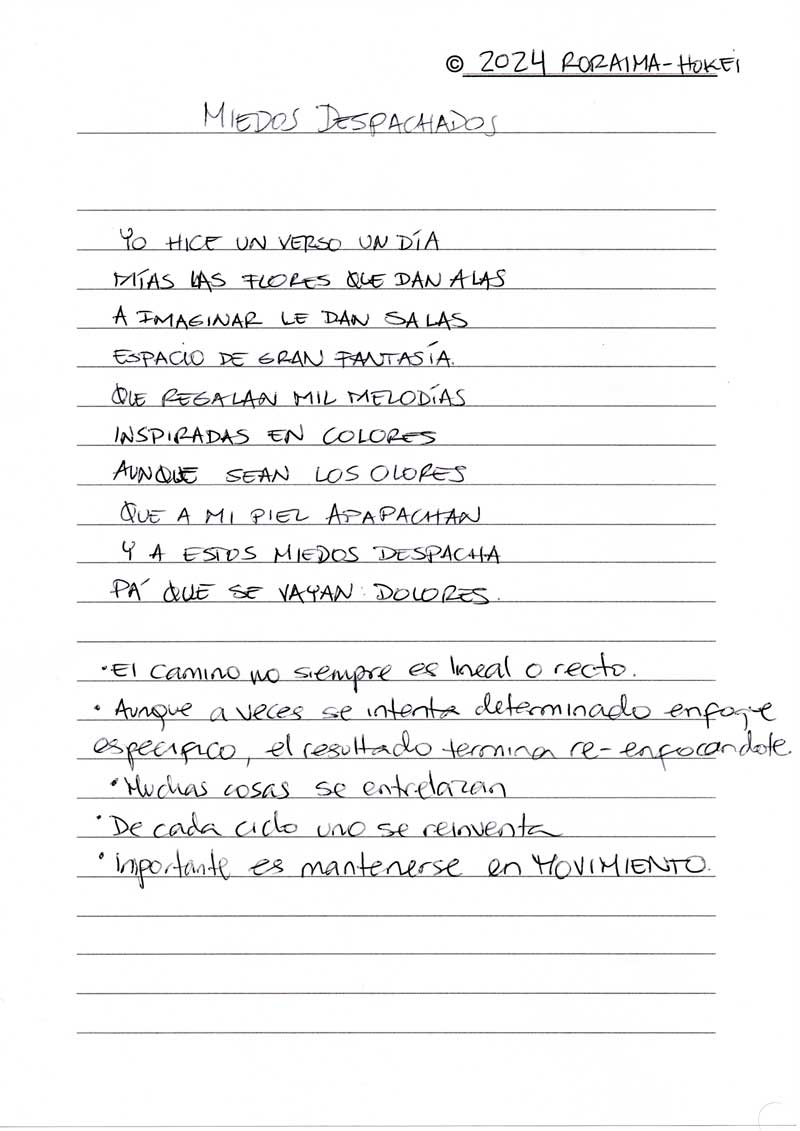 © 2024 RORAIMA-HOKEI
MIEDOS DESPACHADOS
YO HICE UN VERSO UN DÍA
MÍAS LAS FLORES QUE DAN ALAS
A IMAGINAR LE DAN SALAS
ESPACIO DE GRAN FANTASÍA.
QUE REGALAN MIL MELODÍAS
INSPIRADAS EN COLORES
AUNQUE SEAN LOS OLORES
QUE A MI PIEL APAPACHAN
Y A ESTOS MIEDOS DESPACHA
PA´ QUE SE VAYAN DOLORES.
• El camino no siempre es lineal o recto.
• Aunque a veces se intenta determinado enfoque
específico, el resultado termina re-enfocandote.
• Muchas cosas se entrelazan
• De cada ciclo uno se reinventa
• importante es mantenerse en MOVIMIENTO.